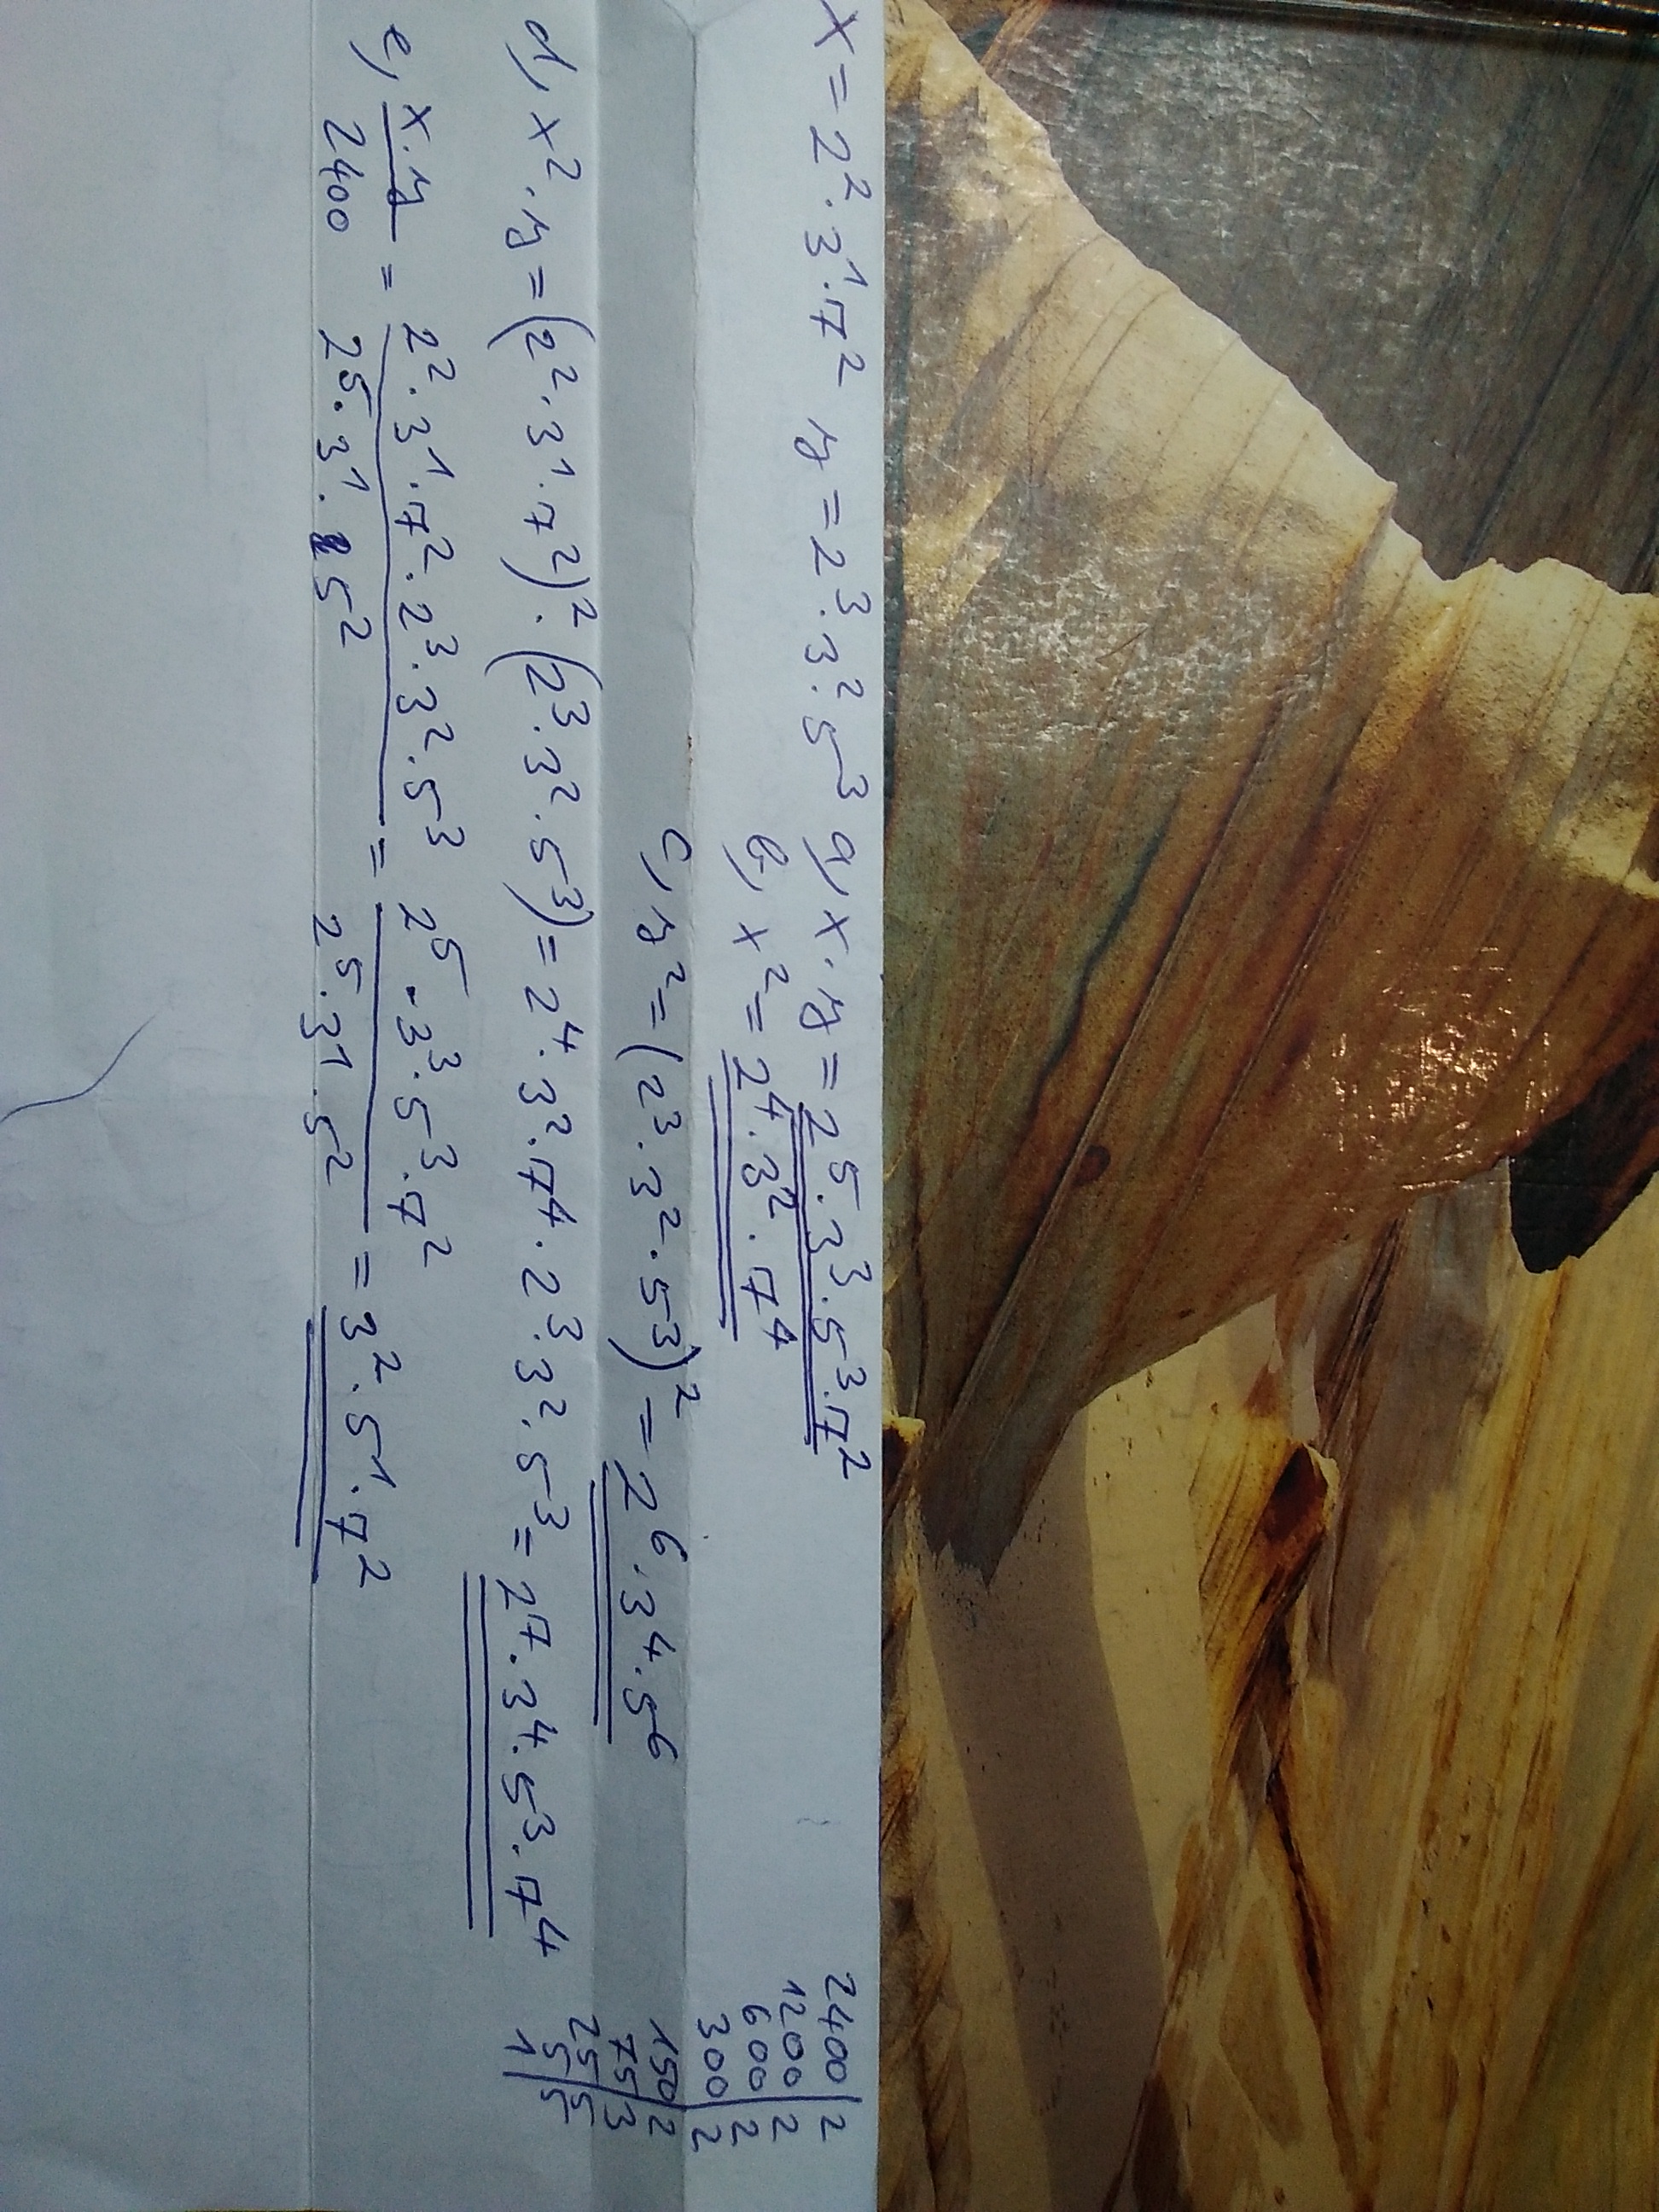 x = 2² · 3¹ · 7² y = 2³ · 3² · 5³ a, x · y = 2⁵ · 3³ · 5³ · 7²
b, x² = 2⁴ · 3² · 7⁴
c, y² = (2³ · 3² · 5³)² = 2⁶ · 3⁴ · 5⁶
d, x² · y = (2² · 3¹ · 7²)² · (2³ · 3² · 5³) = 2⁴ · 3² · 7⁴ · 2³ · 3² · 5³ = 2⁷ · 3⁴ · 5³ · 7⁴
e, x · y / 2400 = 2² · 3¹ · 7² · 2³ · 3² · 5³ / 2⁵ · 3¹ · 5² = 2⁵ · 3³ · 5³ · 7² / 2⁵ · 3¹ · 5² = 3² · 5¹ · 7²
2400 | 2
1200 | 2
600 | 2
300 | 2
150 | 2
75 | 3
25 | 5
5 | 5
1 |